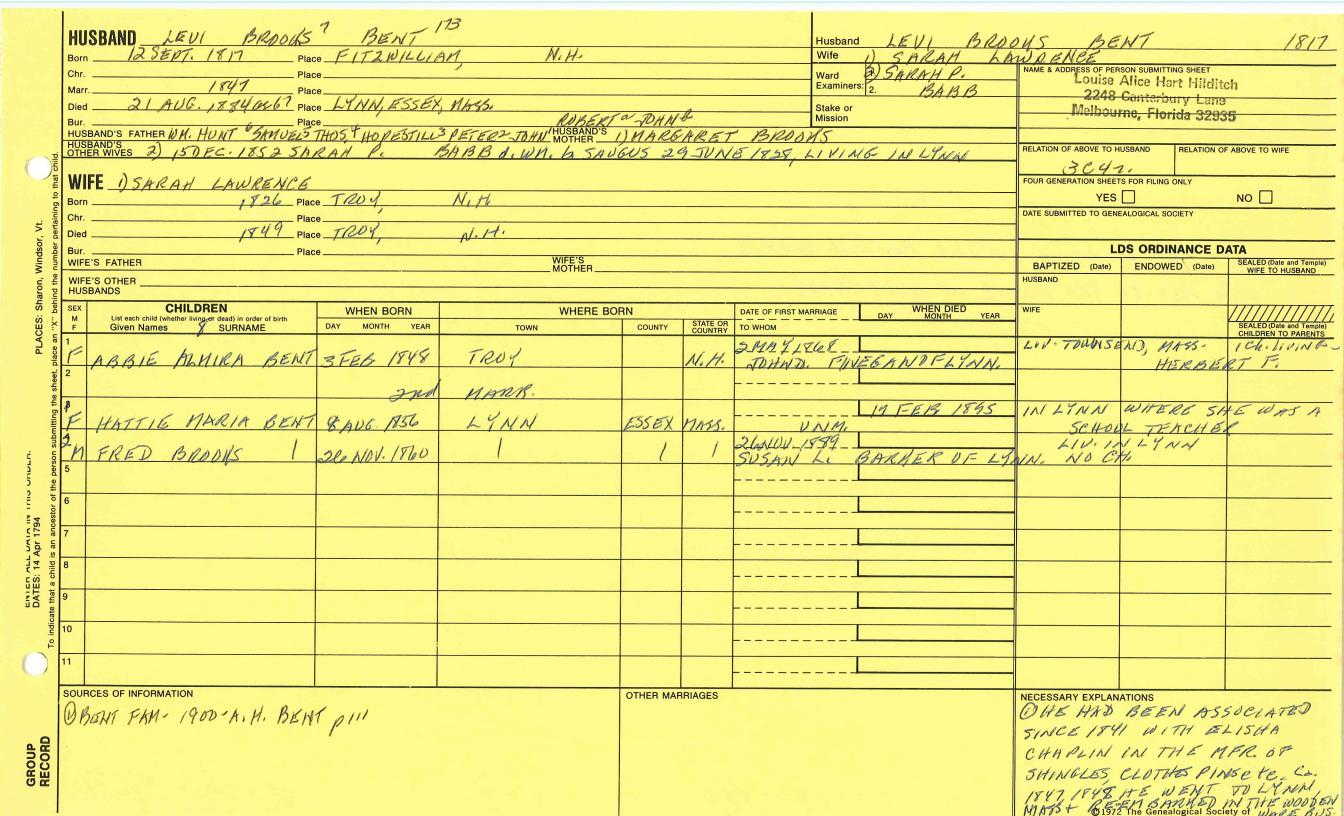 HUSBAND LEVI BROOKS 7 BENT 173
Born 12 SEPT. 1817 Place FITZWILLIAM, N.H.
Chr. Place
Marr. 1847 Place
Died 21 AUG. 1884 Place LYNN, ESSEX, MASS.
Bur. Place ROBERT JOHN
HUSBAND'S FATHER WM. HUNT 6 SAMUEL THOS 4 HOPESTILL 3 PETER 2 JOHN 1 HUSBAND'S MOTHER 1) MARGARET BROOKS
HUSBAND'S OTHER WIVES 2) 15 DEC. 1852 SARAH P. BABB d. WM. b SAUGUS 29 JUNE 1828, LIVING IN LYNN
Husband LEVI BROOKS BENT 1817
Wife 1) SARAH LAWRENCE
Ward Examiners: 2) SARAH P.
2. BABB
Stake or Mission
NAME & ADDRESS OF PERSON SUBMITTING SHEET
Louise Alice Hart Hilditch
2248 Canterbury Lane
Melbourne, Florida 32935
RELATION OF ABOVE TO HUSBAND RELATION OF ABOVE TO WIFE
3C4r.
FOUR GENERATION SHEETS FOR FILING ONLY
YES NO
DATE SUBMITTED TO GENEALOGICAL SOCIETY
WIFE 1) SARAH LAWRENCE
Born 1826 Place TROY, N.H.
Chr. Place
Died 1849 Place TROY, N.H.
Bur. Place
WIFE'S FATHER WIFE'S MOTHER
WIFE'S OTHER HUSBANDS
LDS ORDINANCE DATA
BAPTIZED (Date) ENDOWED (Date) SEALED (Date and Temple) WIFE TO HUSBAND
HUSBAND
WIFE
SEALED (Date and Temple) CHILDREN TO PARENTS
SEX M F
CHILDREN
List each child (whether living or dead) in order of birth
Given Names SURNAME
WHEN BORN
DAY MONTH YEAR
WHERE BORN
TOWN COUNTY STATE OR COUNTRY
DATE OF FIRST MARRIAGE
TO WHOM
WHEN DIED
DAY MONTH YEAR
1 2 MAY, 1868 LIV. TOWNSEND, MASS. 1 CH. LIVING-
F ABBIE ALMIRA BENT 3 FEB 1848 TROY N.H. JOHN D. FINEGAN OF LYNN. HERBERT F.
2
2nd MARR.
1 17 FEB 1895 IN LYNN WHERE SHE WAS A
F HATTIE MARIA BENT 8 AUG 1856 LYNN ESSEX MASS. UNM. SCHOOL TEACHER
2 26 NOV. 1889 LIV. IN LYNN
M FRED BROOKS 26 NOV. 1860 SUSAN L. BARKER OF LYNN. NO CH.
5
6
7
8
9
10
11
SOURCES OF INFORMATION
① BENT FAM- 1900-A.H. BENT p111
OTHER MARRIAGES
NECESSARY EXPLANATIONS
① HE HAD BEEN ASSOCIATED
SINCE 1841 WITH ELISHA
CHAPLIN IN THE MFR. OF
SHINGLES, CLOTHES PINS etc. Ca.
1847 1848 HE WENT TO LYNN,
MASS + RE-EMBARKED IN THE WOODEN
WARE BUS.
©1972 The Genealogical Society of
PLACES: Sharon, Windsor, Vt.
ENTER ALL DATA IN THIS ORDER:
DATES: 14 Apr 1794
To indicate that a child is an ancestor of the person submitting the sheet, place an "X" behind the number pertaining to that child.
GROUP RECORD